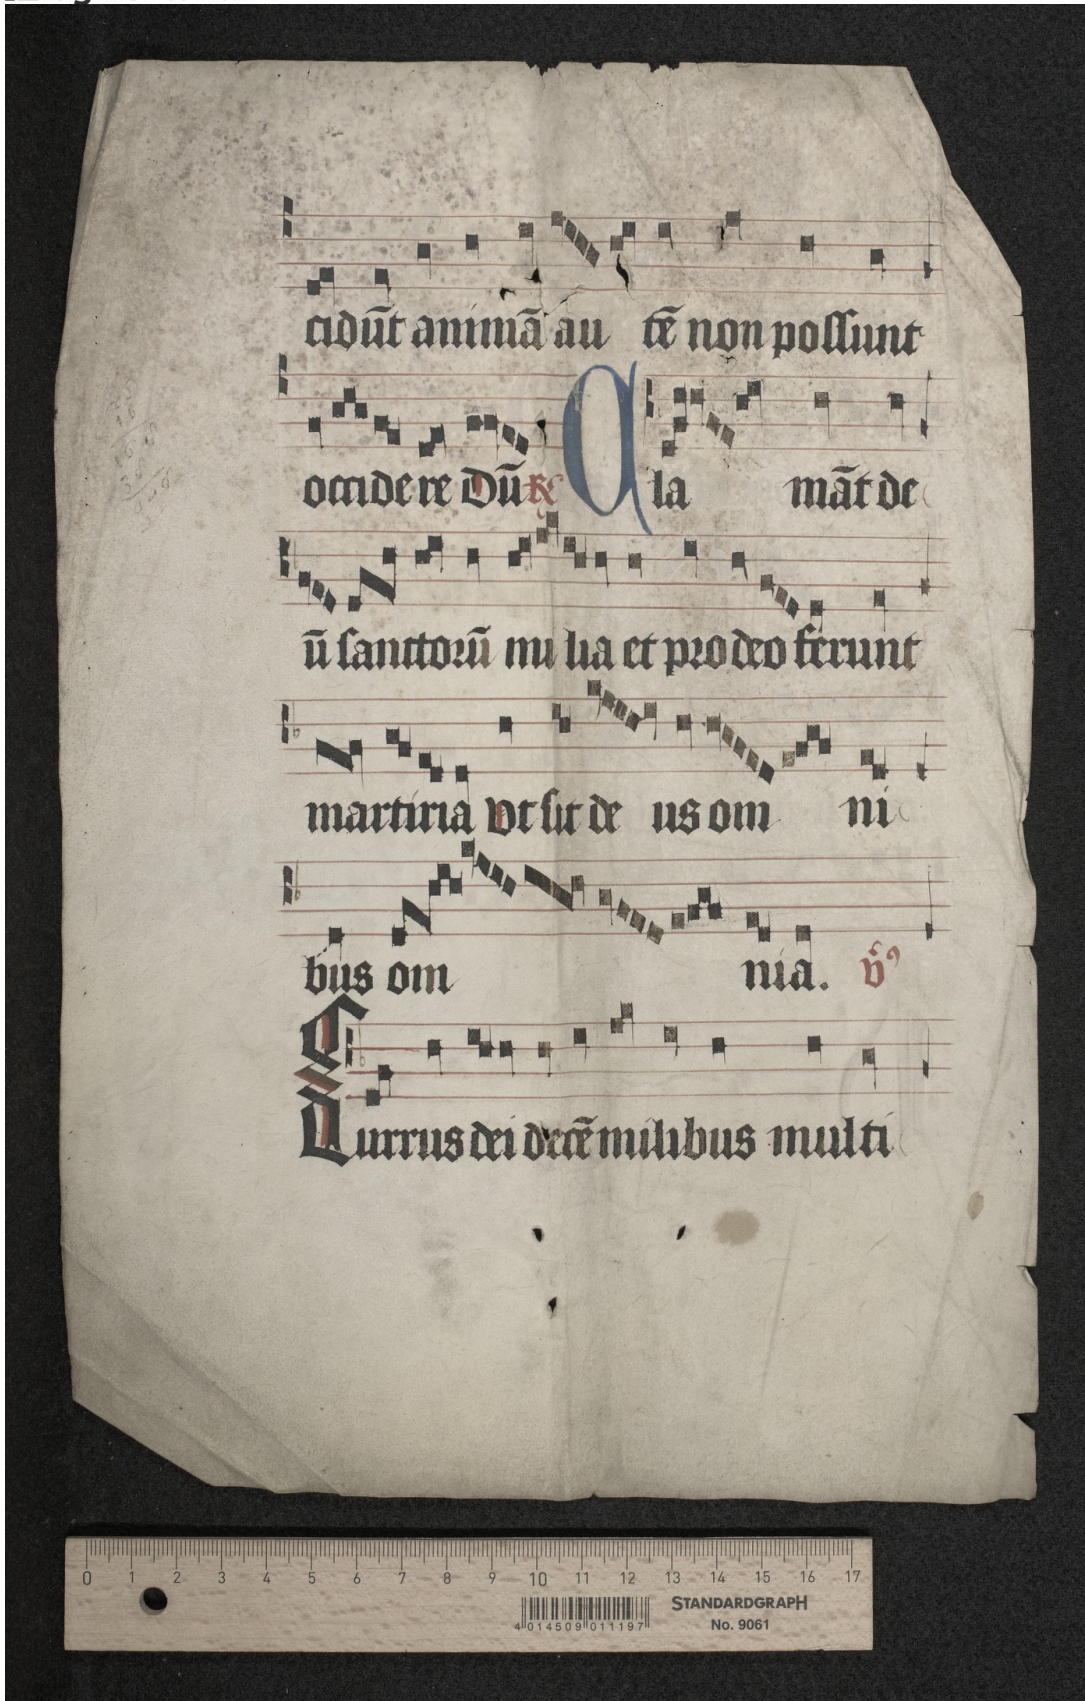 cidūt animā au tē non possunt
occidere Dū ℟ Cla māt de
ū sanctorū milia et pro deo ferunt
martiria Ut sit de us om ni
bus om nia. v̄ꝰ
Currus dei decē milibus multi
0 1 2 3 4 5 6 7 8 9 10 11 12 13 14 15 16 17
4 014509 011197
STANDARDGRAPH
No. 9061